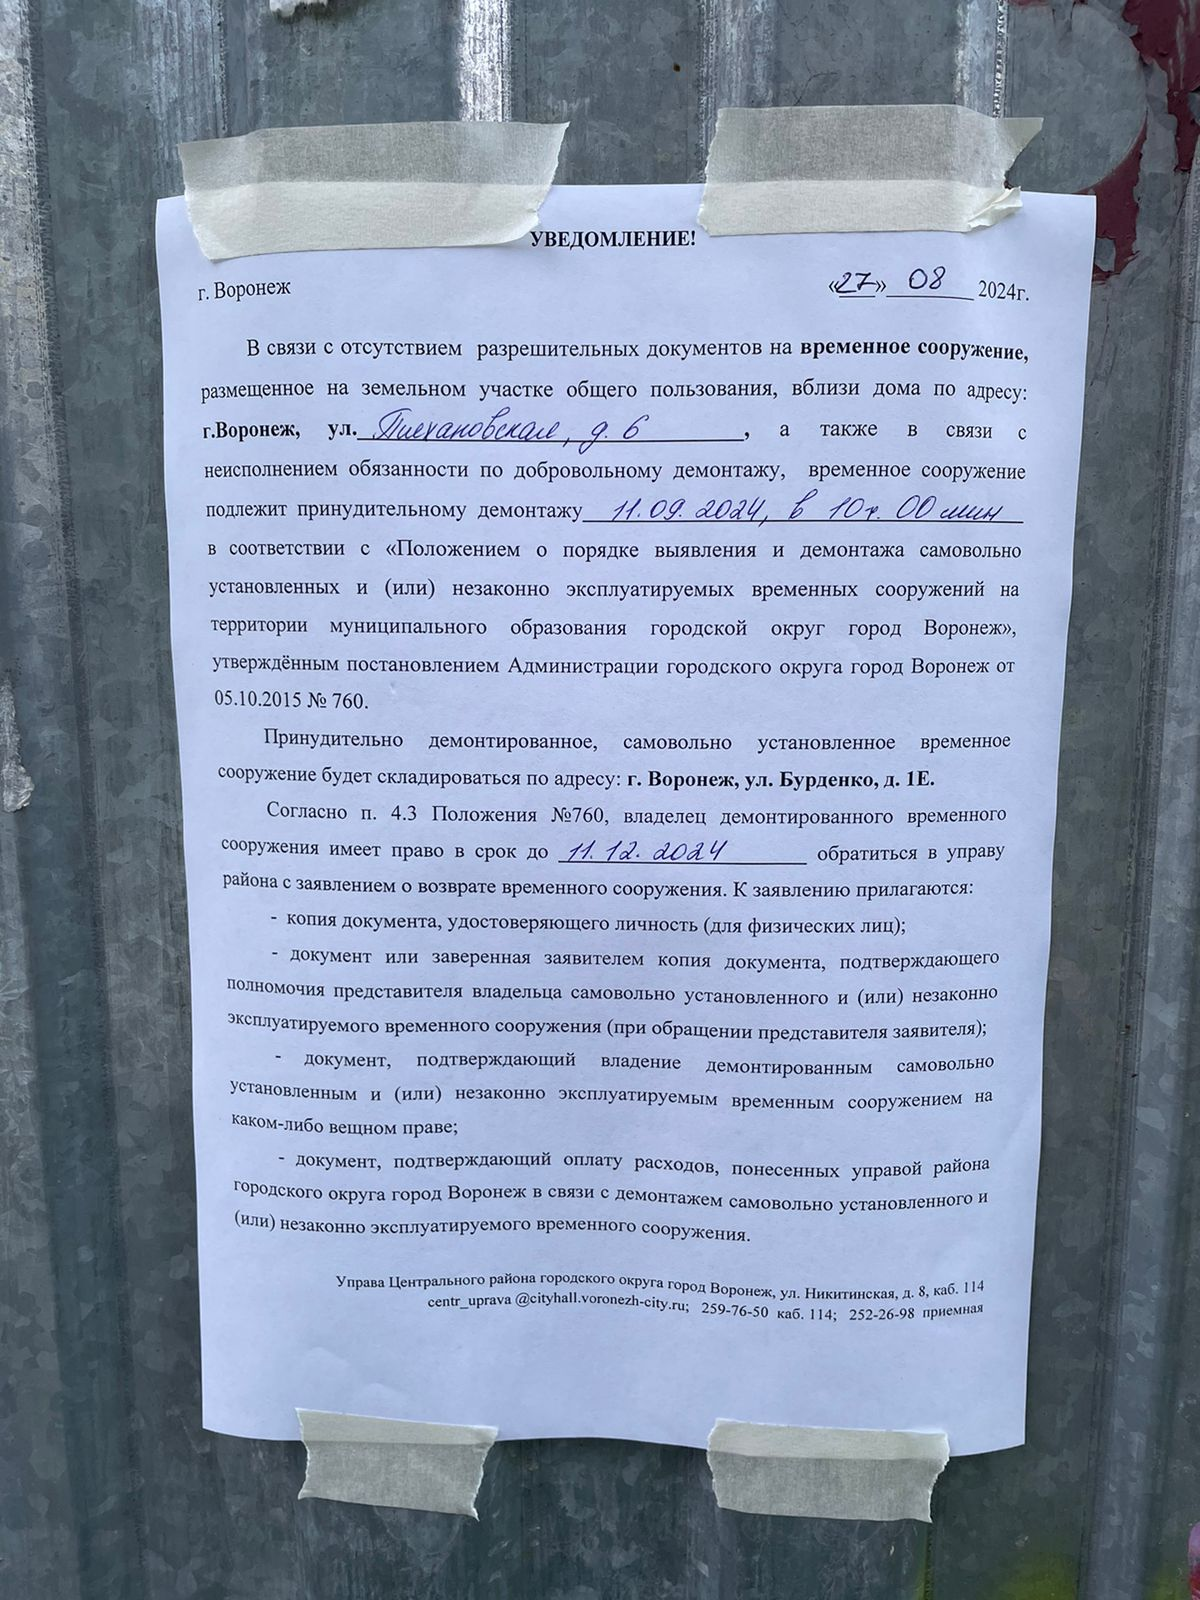 УВЕДОМЛЕНИЕ!
г. Воронеж «27» 08 2024г.
В связи с отсутствием разрешительных документов на временное сооружение,
размещенное на земельном участке общего пользования, вблизи дома по адресу:
г.Воронеж, ул. Плехановская, д. 6, а также в связи с
неисполнением обязанности по добровольному демонтажу, временное сооружение
подлежит принудительному демонтажу 11.09.2024, в 10ч. 00 мин
в соответствии с «Положением о порядке выявления и демонтажа самовольно
установленных и (или) незаконно эксплуатируемых временных сооружений на
территории муниципального образования городской округ город Воронеж»,
утверждённым постановлением Администрации городского округа город Воронеж от
05.10.2015 № 760.
Принудительно демонтированное, самовольно установленное временное
сооружение будет складироваться по адресу: г. Воронеж, ул. Бурденко, д. 1Е.
Согласно п. 4.3 Положения №760, владелец демонтированного временного
сооружения имеет право в срок до 11.12.2024 обратиться в управу
района с заявлением о возврате временного сооружения. К заявлению прилагаются:
- копия документа, удостоверяющего личность (для физических лиц);
- документ или заверенная заявителем копия документа, подтверждающего
полномочия представителя владельца самовольно установленного и (или) незаконно
эксплуатируемого временного сооружения (при обращении представителя заявителя);
- документ, подтверждающий владение демонтированным самовольно
установленным и (или) незаконно эксплуатируемым временным сооружением на
каком-либо вещном праве;
- документ, подтверждающий оплату расходов, понесенных управой района
городского округа город Воронеж в связи с демонтажем самовольно установленного и
(или) незаконно эксплуатируемого временного сооружения.
Управа Центрального района городского округа город Воронеж, ул. Никитинская, д. 8, каб. 114
centr_uprava @cityhall.voronezh-city.ru; 259-76-50 каб. 114; 252-26-98 приемная